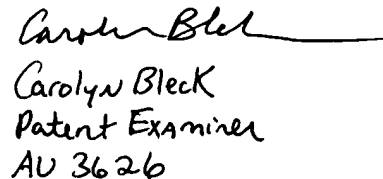 Carolyn Bleck
Carolyn Bleck
Patent Examiner
AU 3626